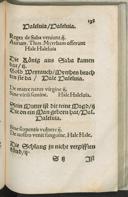 198
Haleluia/Haleluia.
Reges de Saba veniunt ij.
Aurum, Thus, Myrrham offerunt
Hale Haleluia
Die König aus Saba kamen
dar/ij.
Gold Weyrauch/Myrrhen brach
ten sie da / Hale Haleluia.
De matre natus virgine ij.
Sine virili semine. Hale Haleluia.
Sein Mutter ist die reine Magd/ij
Die on ein Man geborn hat/Hal.
Haleluia.
Sine serpentis vulnere ij.
De nostro venit sanguine. Hale Hale.
Die Schlang in nicht vergifften
kund/ij.